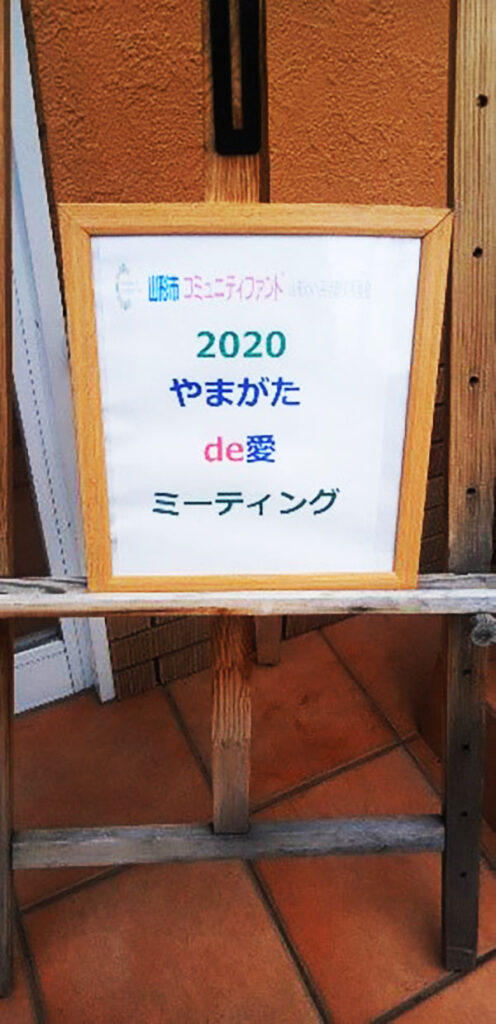 山形市コミュニティファンド
2020
やまがた
de愛
ミーティング